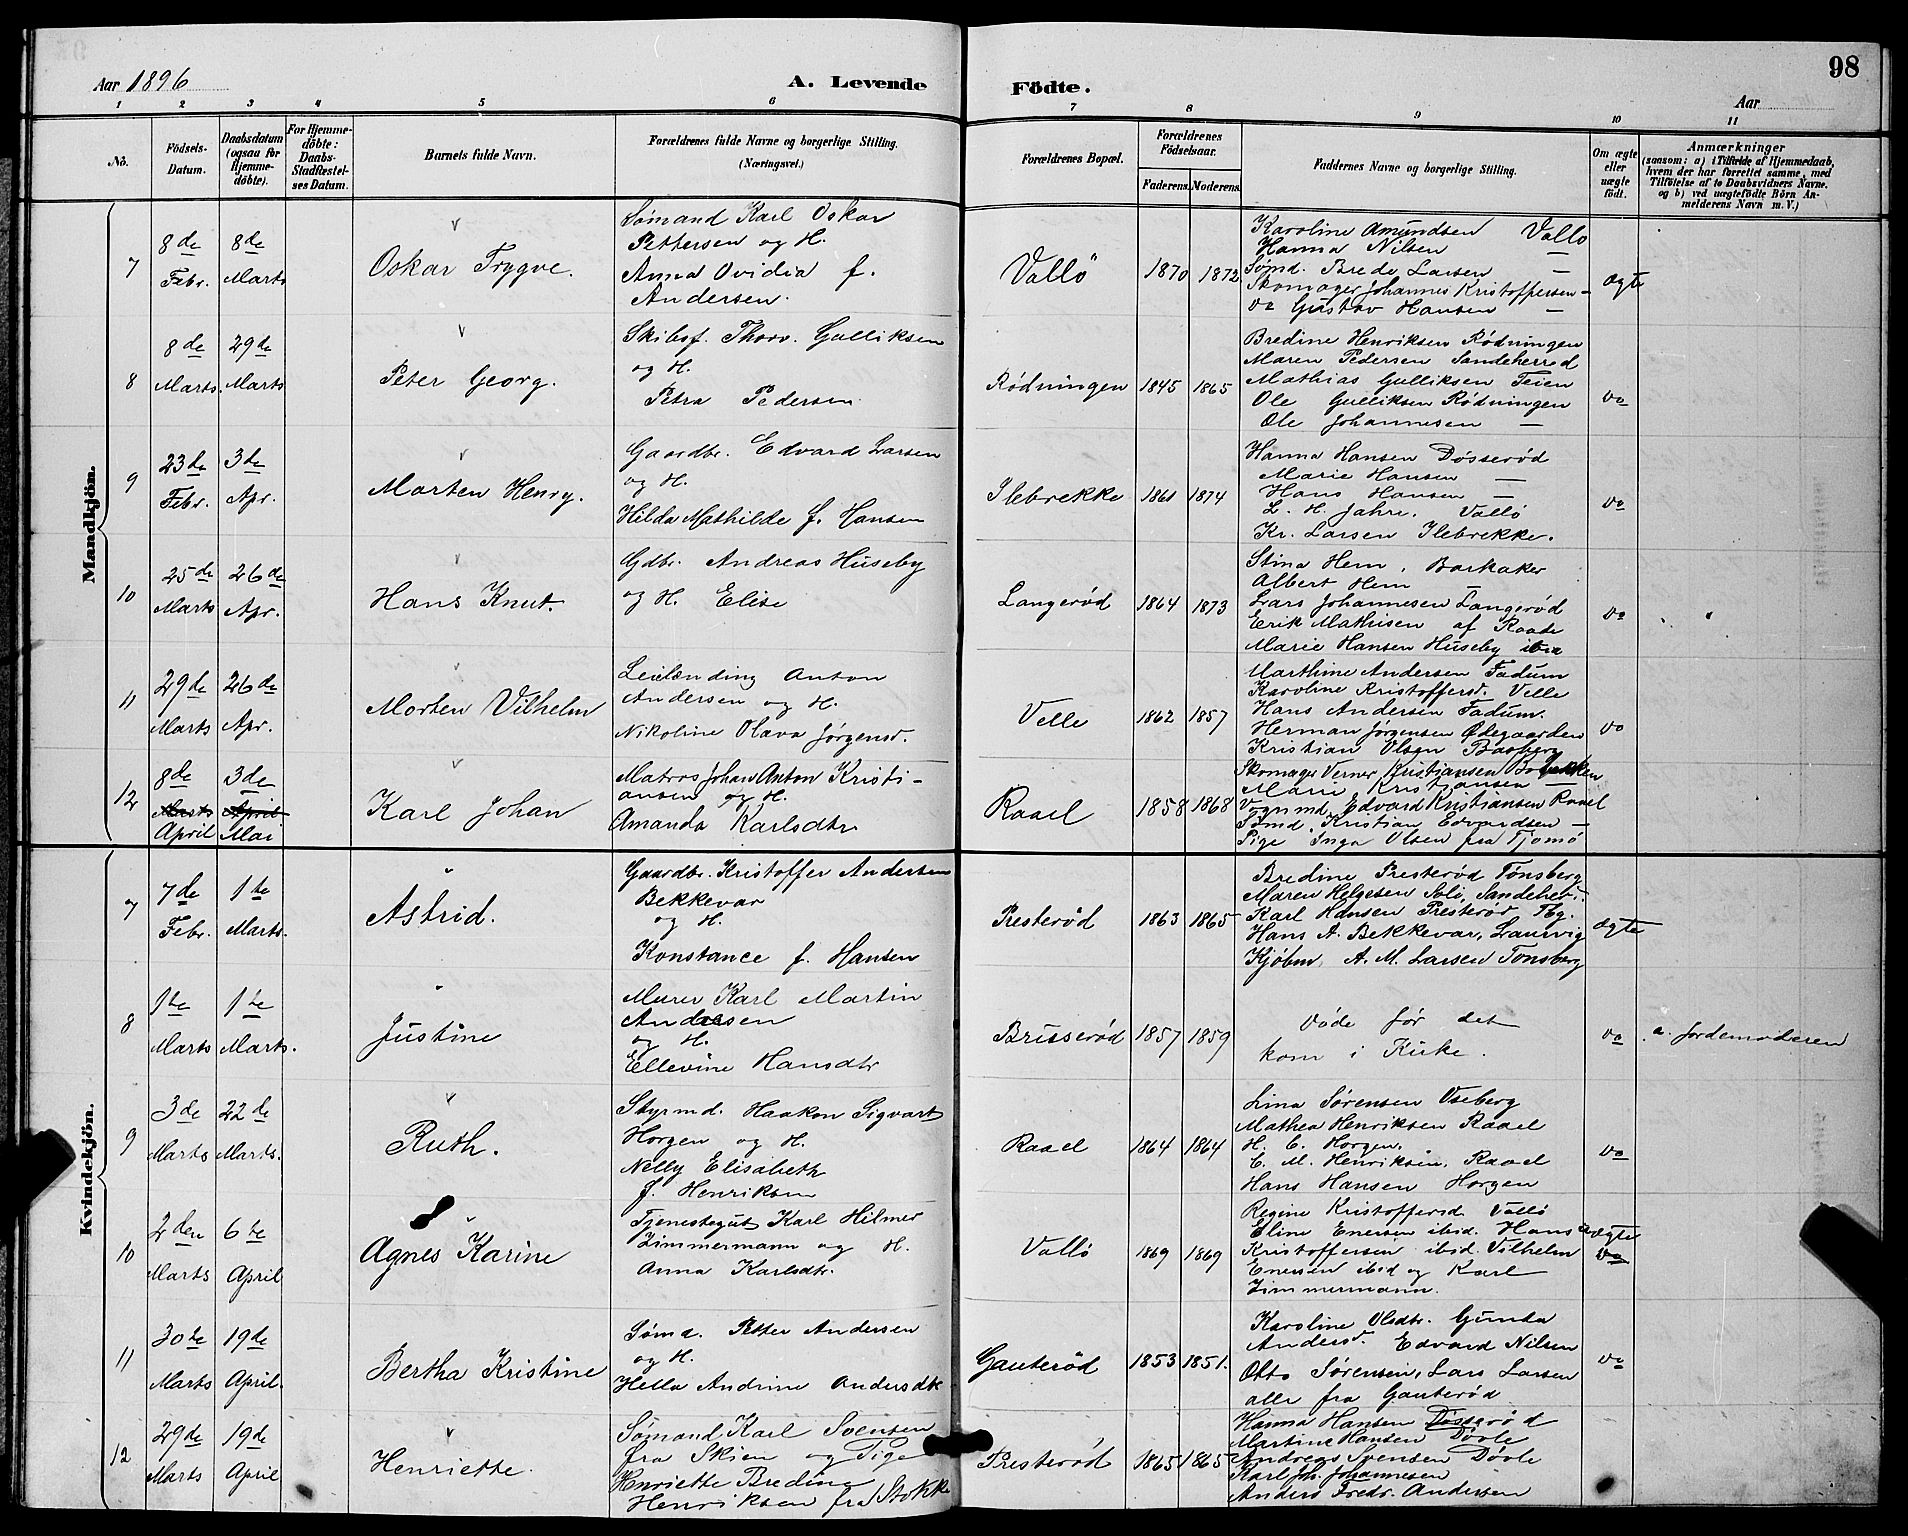 98
Aar 1896
A. Levende
Födte.
Aar
1 2 3 4 5 6 7 8 9 10 11
No.
Födsels-
Datum.
Daabsdatum
(ogsaa for
Hjemme-
döbte).
For Hjemme-
döbte:
Daabs-
Stadfæstel-
ses Datum.
Barnets fulde Navn.
Forældrenes fulde Navne og borgerlige Stilling.
(Næringsvei.)
Forældrenes Bopæl.
Forældrenes
Födselsaar.
Faderens.
Moderens.
Faddernes Navne og borgerlige Stilling.
Om ægte
eller
uægte
födt.
Anmærkninger
(saasom: a) i Tilfælde af Hjemmedaab,
hvem der har forrettet samme, med
Tilföielse af to Daabsvidners Navne.
og b) ved uægtefödte Börn An-
melderens Navn m. V.)
Mandkjön.
7
8de
Febr.
8de
Marts
Oskar Trygve.
Sømand Karl Oskar
Pettersen og H.
Anna Ovidia f.
Andersen.
Vallö
1870
1872
Karoline Amundsen Vallö
Hanna Nilsen —
Sømd. Brede Larsen —
Skomager Johannes Kristoffersen —
do Gustav Hansen —
ægte
8
8de
Marts.
29de
Marts
Peter Georg.
Skibsf. Thorv. Gulliksen
og H.
Petra Pedersen
Rødningen
1845
1865
Bredine Henriksen Rødningen
Maren Pedersen Sandeherred
Mathias Gulliksen Feien
Ole Gulliksen Rødningen
Ole Johannesen —
do
9
23de
Febr.
3de
Apr.
Morten Henry.
Gaardbr. Edvard Larsen
og H.
Hilda Mathilde f. Hansen
Ilebrekke
1861
1874
Hanna Hansen Døsserød
Marie Hansen —
Hans Hansen —
L. H. Jahre. Vallö
Kr. Larsen Ilebrekke.
do
10
25de
Marts
26de
Apr.
Hans Knut.
Gdbr. Andreas Huseby
og H. Elise
Langerød
1864
1873
Stina Hem, Barkaker
Albert Hem —
Lars Johannesen Langerød
Erik Mathisen af Raade
Marie Hansen Huseby ibid
do
11
29de
Marts
26de
Apr.
Morten Vilhelm
Leilænding Anton
Andersen og H.
Nikoline Olava Jørgensd.
Velle
1862
1857
Marthine Andersen Fadum
Karoline Kristoffersd. Velle
Hans Andersen Fadum.
Herman Jørgensen Ødegaarden
Kristian Olsen Basberg
do
12
8de
Marts
April
3de
April
Mai
Karl Johan
Matros Johan Anton Kristi-
ansen og H.
Amanda Karlsdtr
Rael
1858
1868
Skomager Verner Kristiansen
Marie Kristiansen —
Vognmd. Edvard Kristiansen Raael
Sømd. Kristian Edvardsen —
Pige Inga Olsen fra Tjømø
Kvindekjön.
7
7de
Febr.
1te
Marts.
Astrid.
Gaardbr. Kristoffer Andersen
Bekkevar
og H.
Konstance f. Hansen
Presterød
1863
1865
Bredine Presterød Tönsberg
Maren Helgesen Solø, Sandeher.
Karl Hansen Presterød Tbg.
Hans A. Bekkevar, Laurvig
Kjøbm. A. M. Larsen Tønsberg
ægte
8
1te
Marts
1te
Marts.
Justine
Murer Karl Martin
Andersen
og H.
Ellevine Hansdtr
Brusserød
1857
1859
Døde før det
kom i Kirke.
do
a. Jordemoderen
9
3de
Marts
22de
Marts.
Ruth.
Styrmd. Haakon Sigvart
Horgen og H.
Nelly Elisabeth
f. Henriksen
Raael
1864
1864
Lina Sørensen Oseberg
Mathea Henriksen Raael
H. C. Horgen.
C. M. Henriksen, Raael
Hans Hansen Horgen
do
10
2den
Marts
6te
April
Agnes Karine
Tjenestegut Karl Hilmer
Zimmermann og H.
Anna Karlsdtr.
Vallö
1869
1869
Regine Kristoffersd Vallö
Eline Enersen ibid. Hans
Kristoffersen ibid. Vilhelm
Enersen ibid og Karl
Zimmermann.
uægte
do
11
30te
Marts
19de
April.
Bertha Kristine
Sømd. Petter Andersen
og H.
Hella Andrine Andersdtr
Gauterød
1853
1851.
Karoline Olsdtr. Gunda
Andersd. Edvard Nilsen
Otto Sørensen, Lars Larsen
alle fra Gauterød
do
12
29de
Marts
19de
April
Henriette.
Sømand Karl Svensen
fra Skien og Pige
Henriette Bredine
Henriksen fra Stokke
Presterød
1865
1865
Hanna Hansen Døsserød
Martine Hansen Døvle
Andreas Svensen Døvle
Karl Joh. Johannesen
Anders Fredr. Andersen